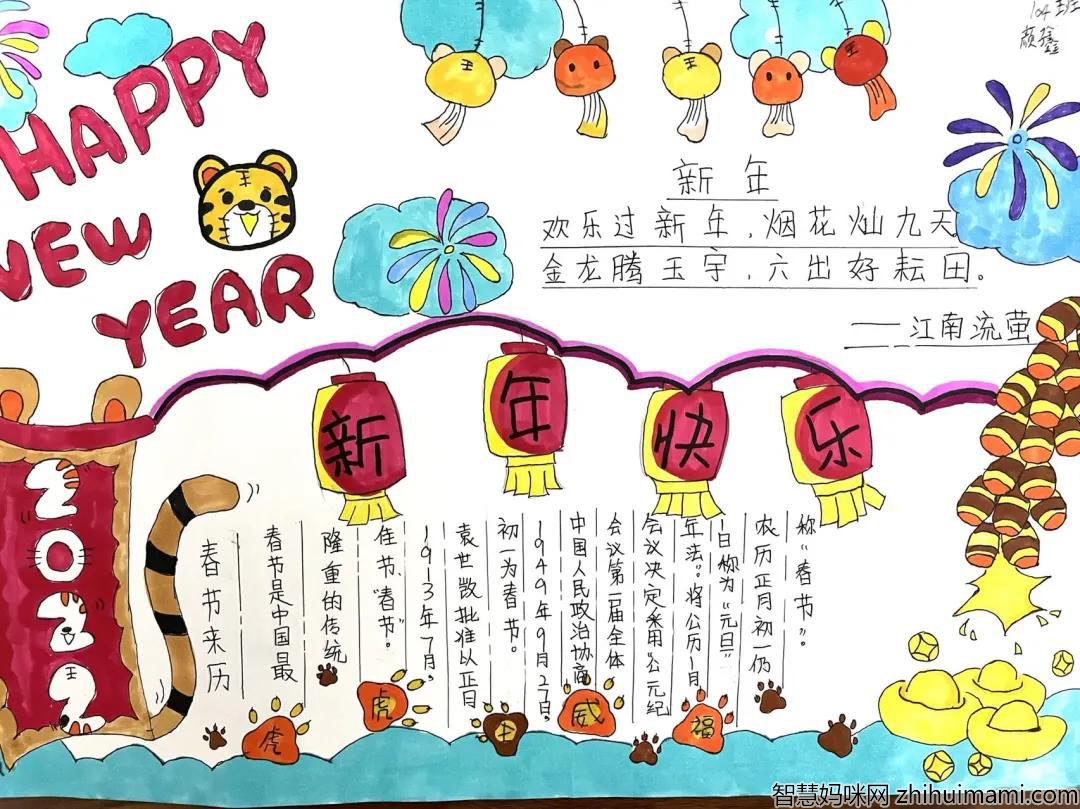 HAPPY
NEW
YEAR
104班
颜鑫
新年
欢乐过新年，烟花灿九天
金龙腾玉宇，六出好耘田。
——江南流萤
新年快乐
2022
春节来历
春节是中国最
隆重的传统
佳节、“春节”。
1913年7月，
袁世凯批准以正月
初一为春节。
1949年9月27日。
中国人民政治协商
会议第一届全体
会议决定采用公元纪
年法”。将公历1月
1日称为“元旦”
农历正月初一仍
称“春节”。
虎
虎
生
威
福
智慧妈咪网 zhihuimami.com